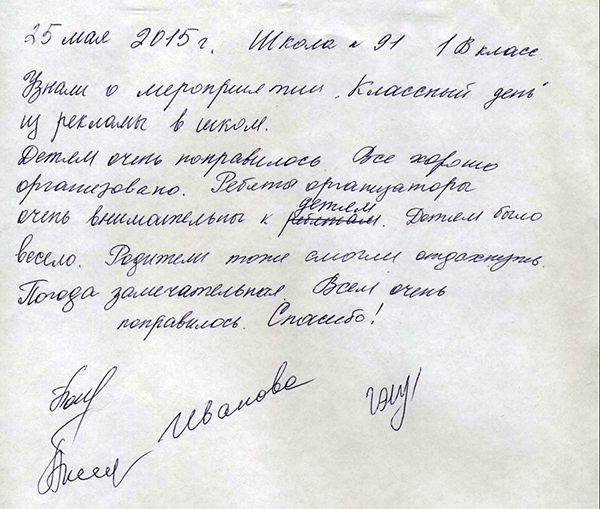 25 мая 2015 г. Школа № 91 1 В класс.
Узнали о мероприятии "Классный день"
из рекламы в школ.
Детям очень понравилось. Все хорошо
организовано. Ребята организаторы
очень внимательны к ребятам детям. Детям было
весело. Родители тоже смогли отдахнуть.
Погода замечательная. Всем очень
понравилось. Спасибо!
Иванова